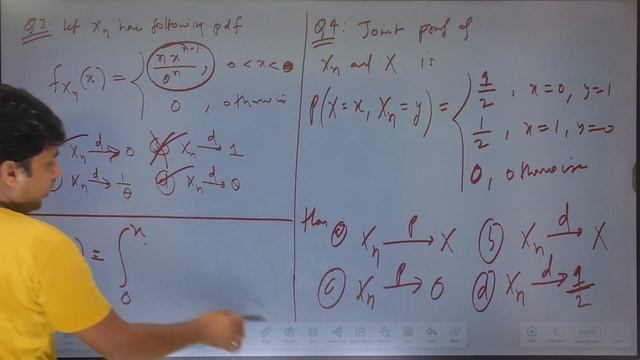 Q3: Let Xn have following pdf
f_{Xn}(x) = { n x^{n-1} / θ^n , 0 < x < θ
0 , otherwise
Xn →d 0 (b) Xn →d 1
Xn →d 1/θ (d) Xn →d θ
) = ∫_0^x
Q4: Joint pmf of
Xn and X is
P(X=x, Xn=y) = { 1/2 , x=0, y=1
1/2 , x=1, y=0
0, otherwise
then (a) Xn →P X (b) Xn →d X
(c) Xn →P 0 (d) Xn →d 1/2